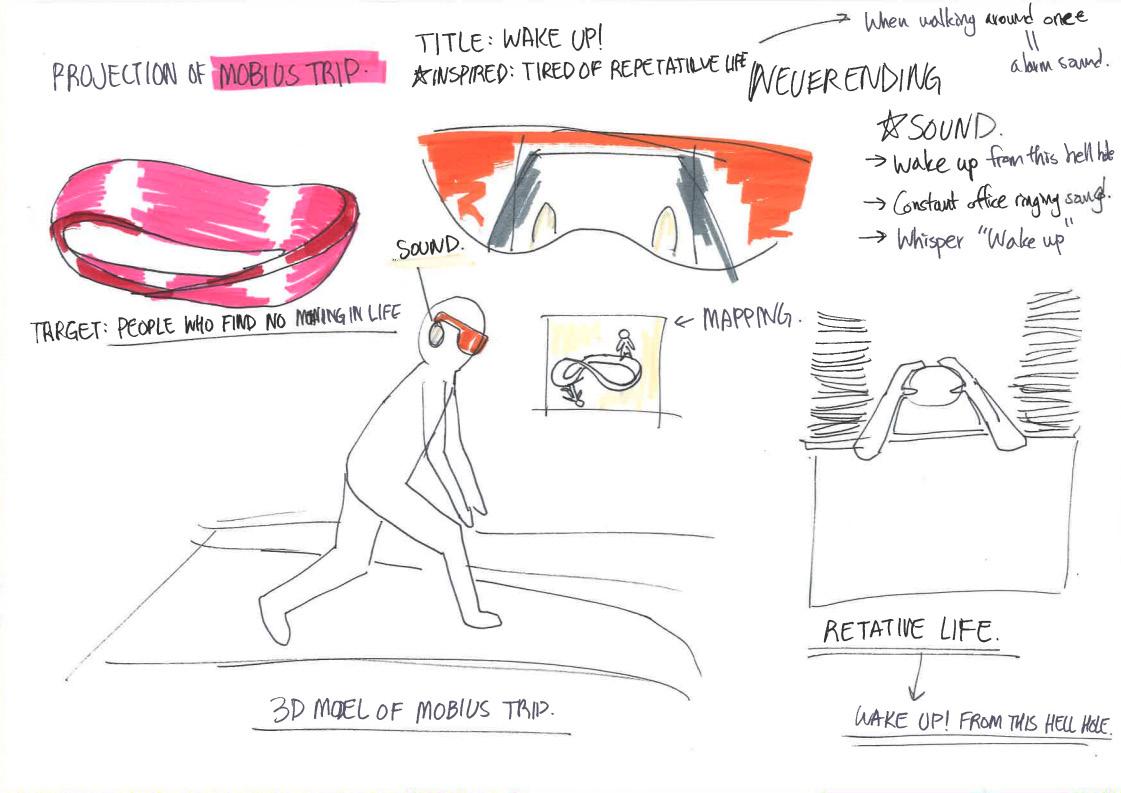 PROJECTION OF MOBIUS TRIP.
TITLE: WAKE UP!
☆INSPIRED: TIRED OF REPETATIVE LIFE
When walking around once
=
alarm sound.
NEVERENDING
☆SOUND.
→ Wake up from this hell hole
→ Constant office ringing sound.
→ Whisper "Wake up"
SOUND.
TARGET: PEOPLE WHO FIND NO MEANING IN LIFE
← MAPPING.
3D MOEL OF MOBIUS TRIP.
RETATIVE LIFE.
WAKE UP! FROM THIS HELL HOLE.